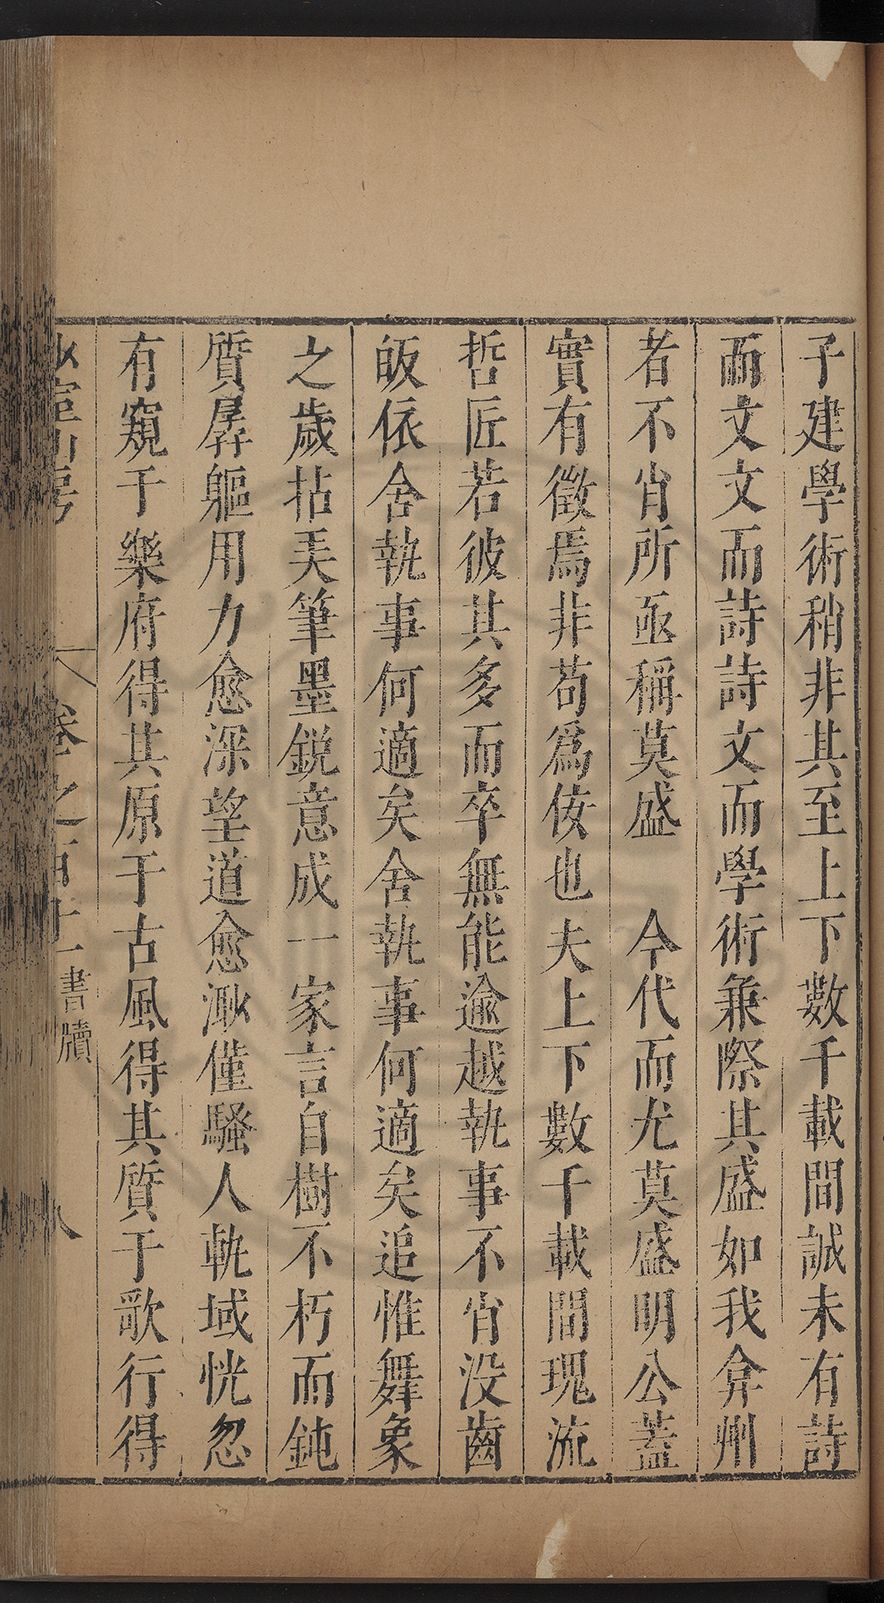 子建學術稍非其至上下數千載間誠未有詩
而文文而詩詩文而學術兼際其盛如我弇州
者不肖所亟稱莫盛　今代而尤莫盛明公蓋
實有徵焉非苟爲佞也夫上下數千載間瑰流
哲匠若彼其多而卒無能逾越執事不肖没齒
皈依舍執事何適矣舍執事何適矣追惟舞象
之歲拈弄筆墨鋭意成一家言自樹不朽而鈍
質孱軀用力愈深望道愈渺僅騷人軌域恍忽
有窺于樂府得其原于古風得其質于歌行得
山房　卷之百十一書牘　八